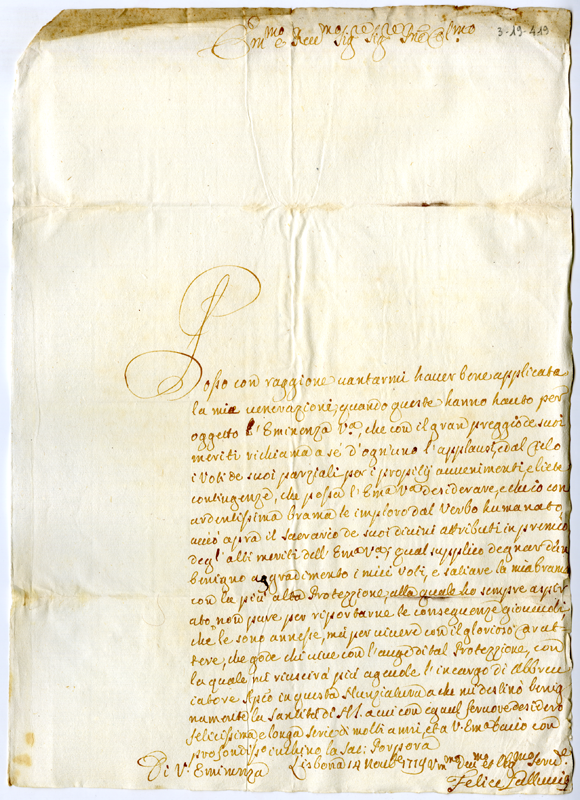 Em.mo e Reu.mo Sig.re Sig.re Pne Col.mo
3-19-419
Posso con raggione uantarmi hauer bene applicata
la mia uenerazione, quando queste hanno hauto per
oggetto l'Eminenza V.a, che con il gran preggio de suoi
meriti richiama a sé d'ogn'uno l'applausi, e dal Cielo
i Voti de suoi parziali per i propitij auuenimenti, e liete
contingenze, che possa l'Em.a V.a desiderare, e che io con
ardentissima brama le imploro dal Verbo humanato,
acciò apra il Sacrario de suoi diuini attributi in premio
degl'alti meriti dell'Em.a V.a, qual supplico degnar d'un
benigno aggradimento i miei Voti, e saliare la mia brama
con la più alta Protezzione, alla quale ho sempre aspir
ato, non pure per riportarne le conseguenze gioueuoli,
che le sono annesse, mà per uiuere con il glorioso Carat
tere, che gode chi uiue con l'auge di tal Protezzione, con
la quale mi riuscirà più ageuole l'incargo di Abbreu
iatore Ap.co in questa Nunziatura a che mi destinò benig
namente la Santità di N.S. a cui con egual feruore desidero
felicissima e longa serie di molti anni, et a V. Em.a bacio con
profondiss.o inchino la Sac: Porpora
Di V.a Eminenza Lisbona 14 Nou.bre 1719
Vm.mo Deu.mo et Obl.mo Seru.re
Felice